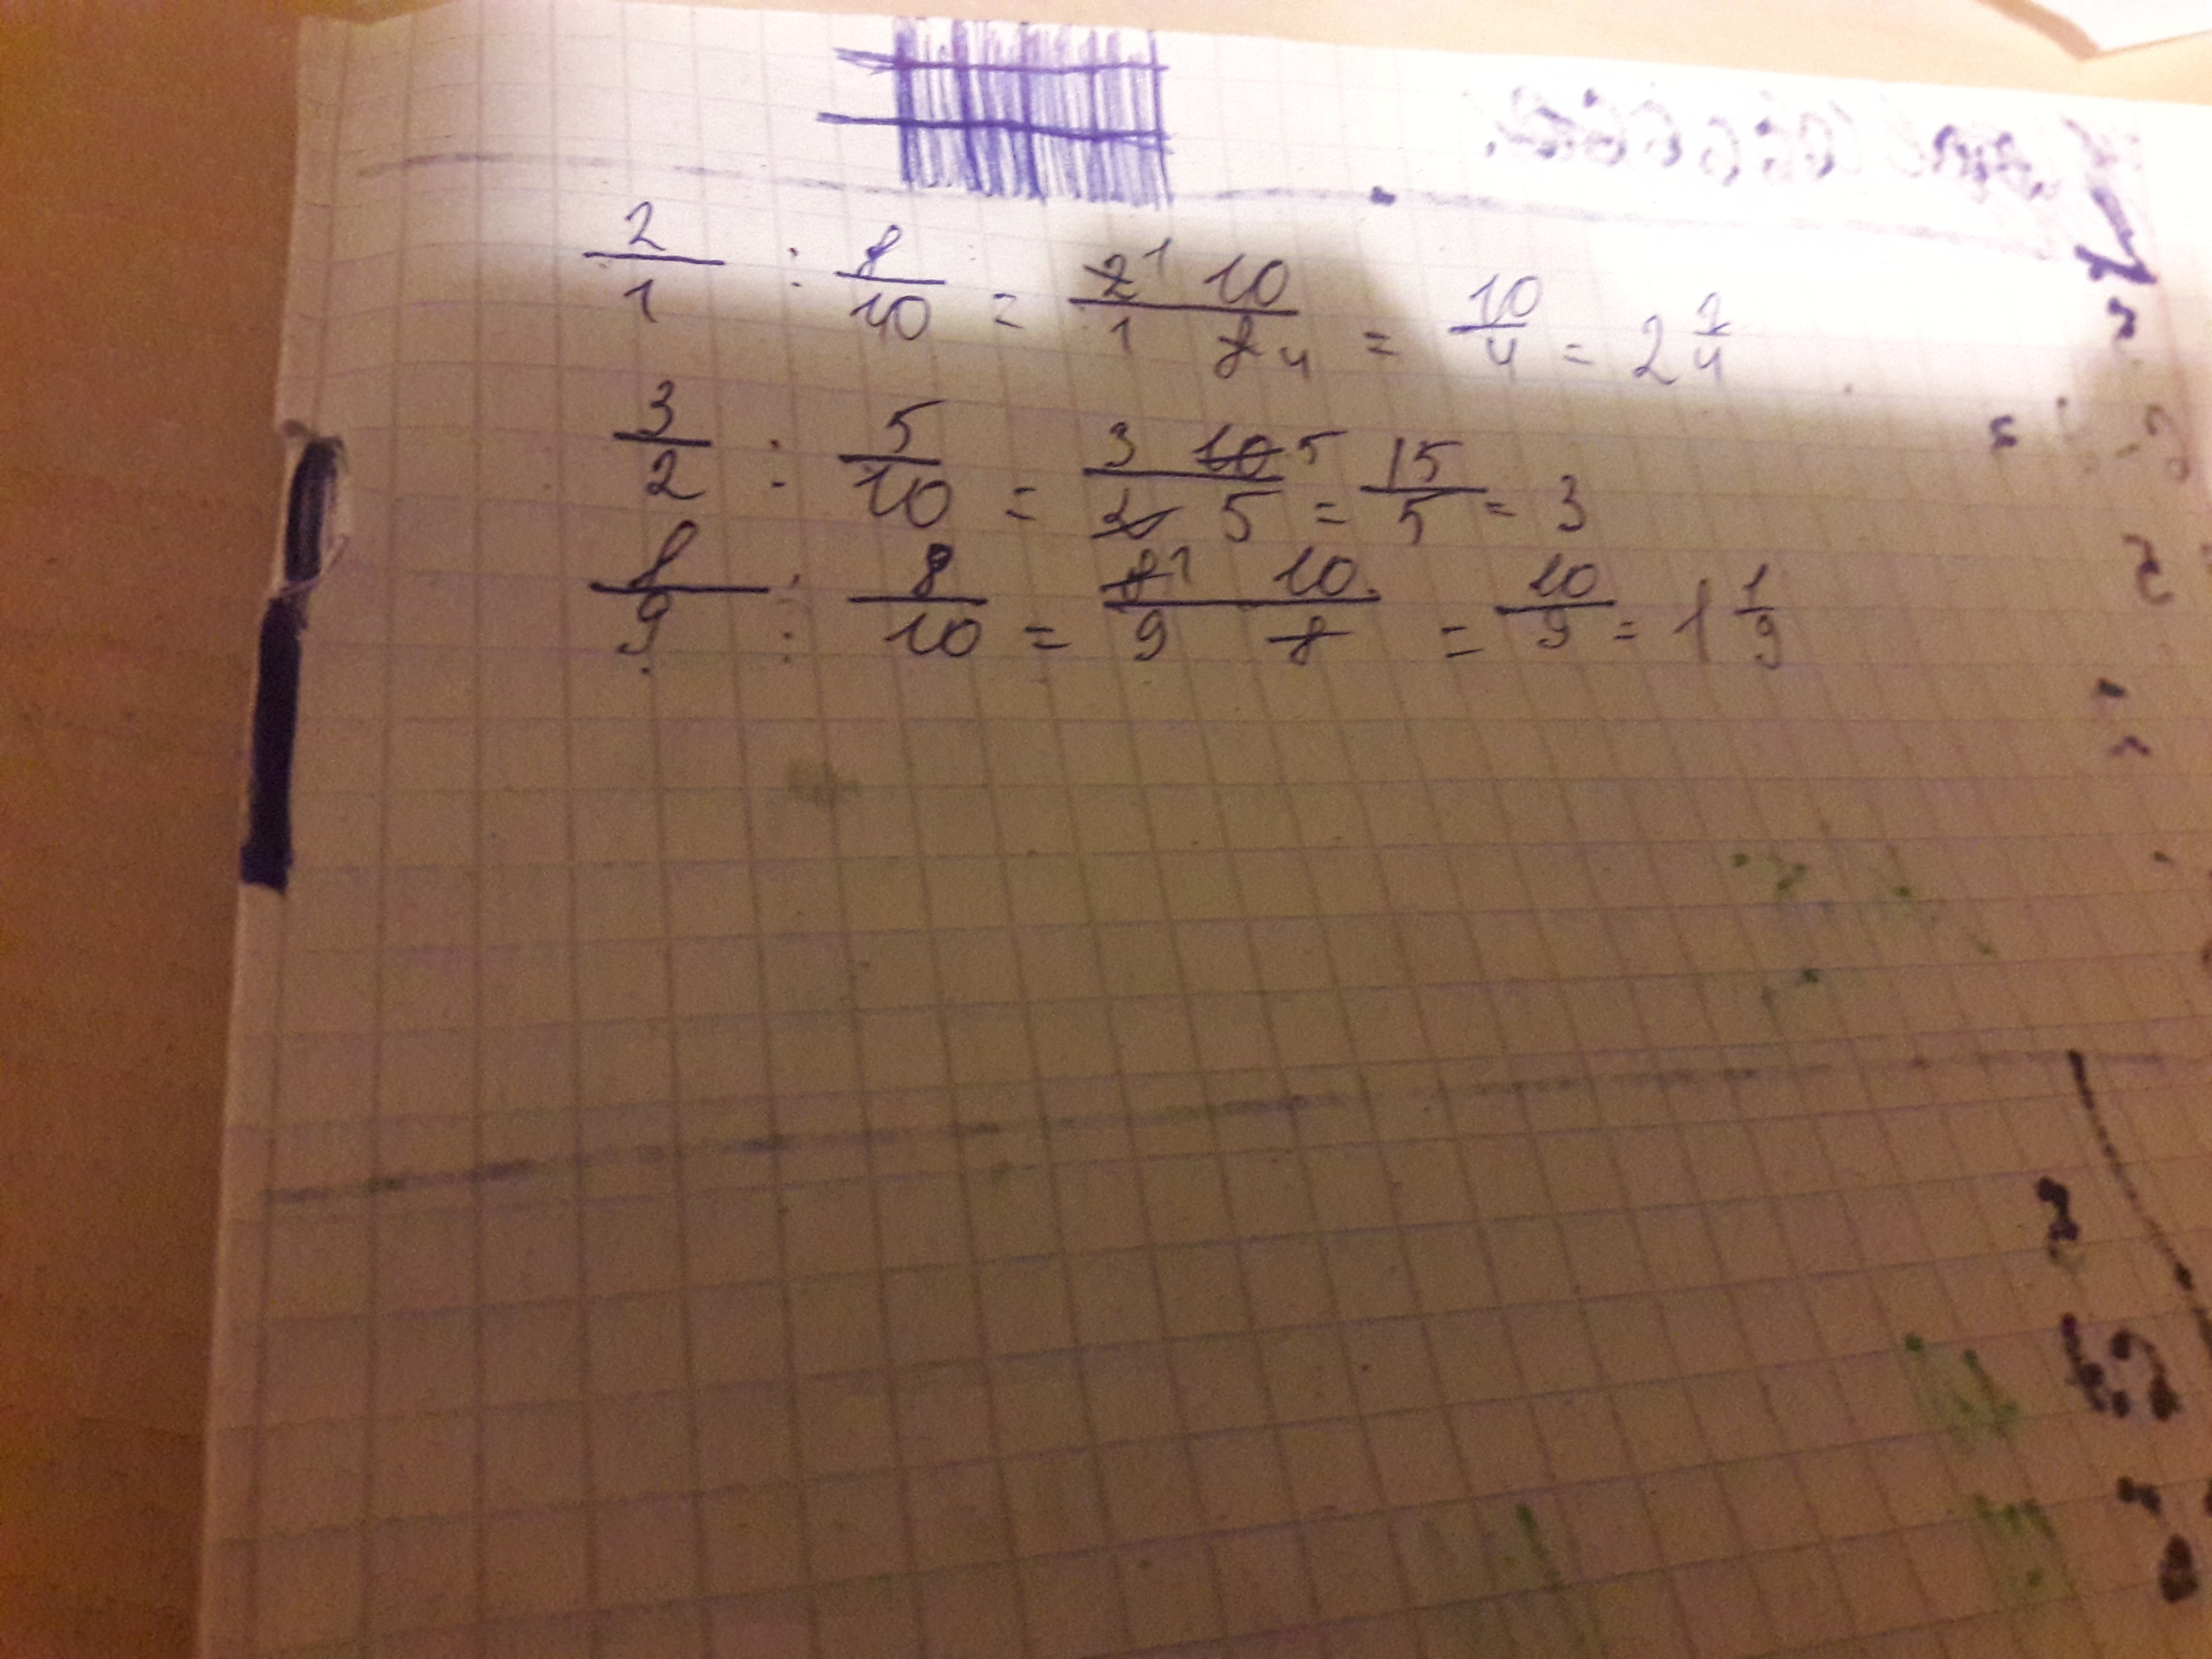 2/1 : 8/10 = 2 1 10 / 1 8 4 = 10/4 = 2 2/4
3/2 : 5/10 = 3 10 5 / 2 5 = 15/5 = 3
8/9 : 8/10 = 8 1 10 / 9 8 = 10/9 = 1 1/9